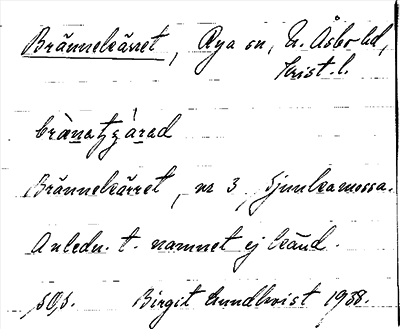 Brännekärret, Rya sn, N. Åsbo hd,
Krist. l.
Brännekärret, nr 3, Sjunkamossa.
Anledn. t. namnet ej känd.
Birgit Lundkvist 1938.